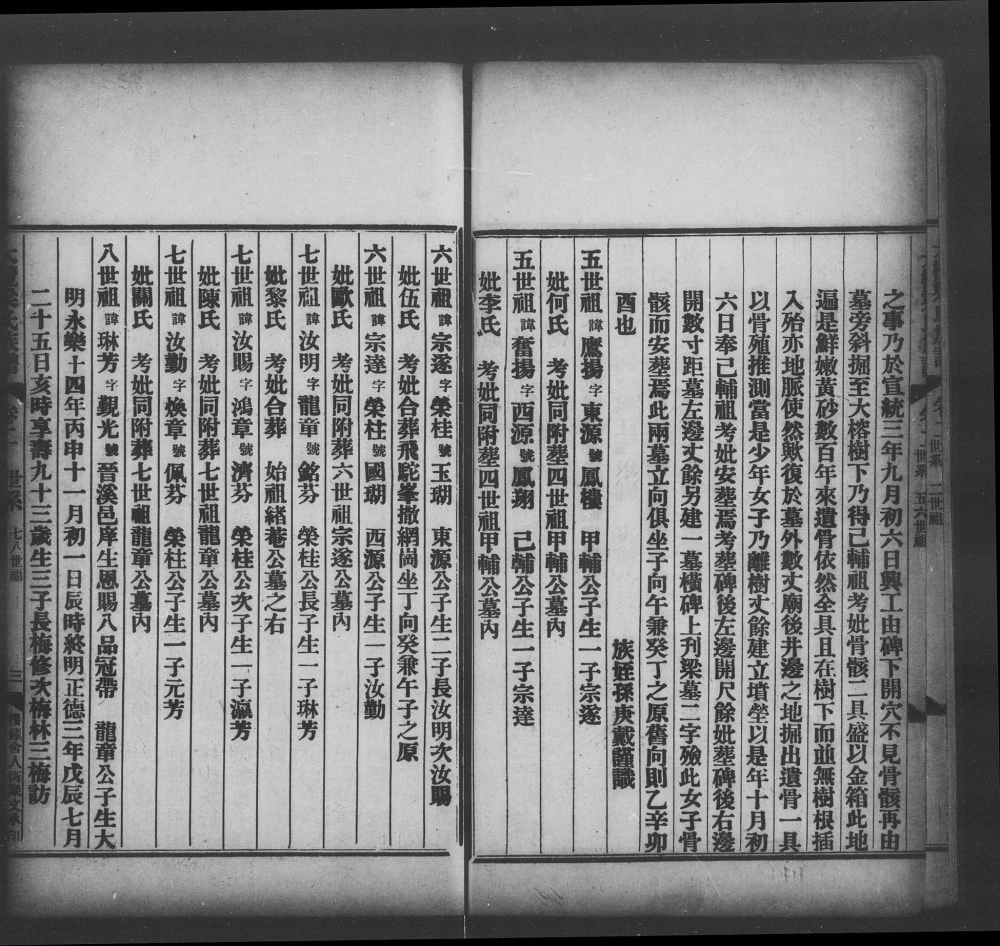 之事乃於宣統三年九月初六日興工由碑下開穴不見骨骸再由
墓旁斜掘至大榕樹下乃得己輔祖考妣骨骸二具盛以金箱此地
遍是鮮嫩黃砂數百年來遺骨依然全具且在樹下而並無樹根插
入殆亦地脈使然歟復於墓外數丈廟後井邊之地掘出遺骨一具
以骨殖推測當是少年女子乃離樹丈餘建立墳塋以是年十月初
六日奉己輔祖考妣安塟焉考塟碑後左邊開尺餘妣塟碑後右邊
開數寸距墓左邊丈餘另建一墓橫碑上刋梁墓二字殮此女子骨
骸而安塟焉此兩墓立向俱坐子向午兼癸丁之原舊向則乙辛卯
酉也 族姪孫庚戴謹識
五世祖 諱 鷹揚 字 東源 號 鳳樓 甲輔公子生一子宗遂
妣何氏 考妣同附塟四世祖甲輔公墓內
五世祖 諱 奮揚 字 西源 號 鳳翔 己輔公子生一子宗達
妣李氏 考妣同附塟四世祖甲輔公墓內
六世祖 諱 宗遂 字 榮桂 號 玉瑚 東源公子生二子長汝明次汝賜
妣伍氏 考妣合葬飛駝峯撒網崗坐丁向癸兼午子之原
六世祖 諱 宗達 字 榮柱 號 國瑚 西源公子生一子汝勤
妣歐氏 考妣同附葬六世祖宗遂公墓內
七世祖 諱 汝明 字 龍章 號 銘芬 榮桂公長子生一子琳芳
妣黎氏 考妣合葬 始祖緒菴公墓之右
七世祖 諱 汝賜 字 鴻章 號 濟芬 榮桂公次子生一子瀛芳
妣陳氏 考妣同附葬七世祖龍章公墓內
七世祖 諱 汝勤 字 煥章 號 佩芬 榮柱公子生一子元芳
妣關氏 考妣同附葬七世祖龍章公墓內
八世祖 諱 琳芳 字 覲光 號 晉溪邑庠生恩賜八品冠帶 龍章公子生大
明永樂十四年丙申十一月初一日辰時終明正德三年戊辰七月
二十五日亥時享壽九十三歲生三子長梅修次梅林三梅訪
世系 七八世祖
三